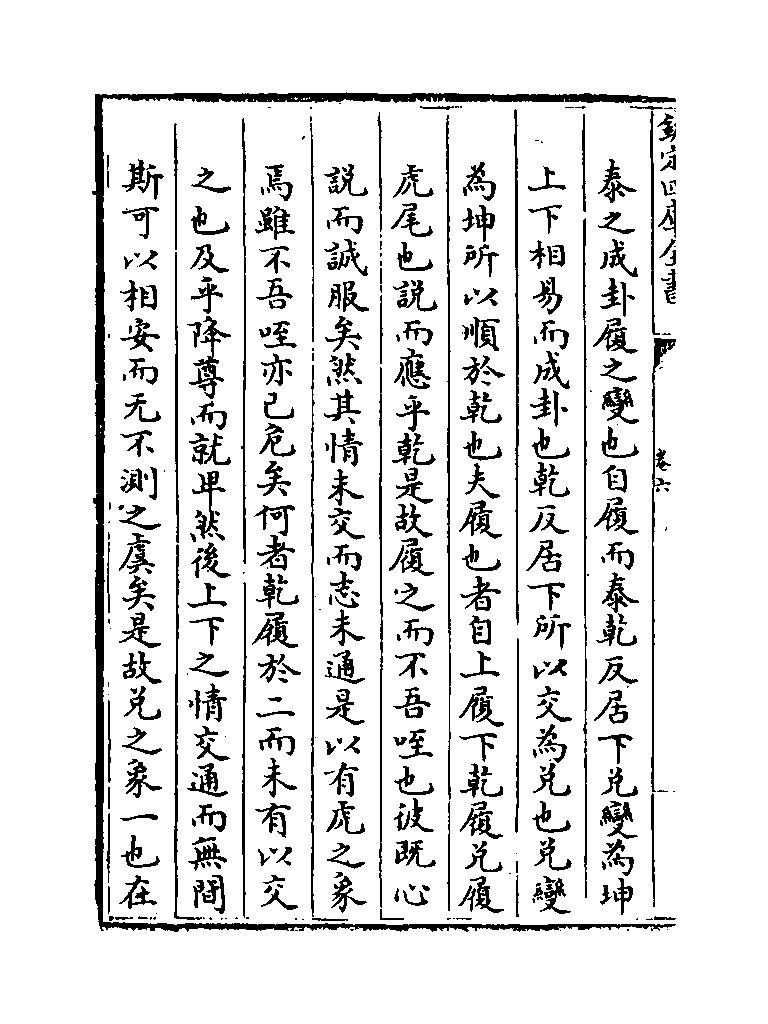 欽定四庫全書
卷六
泰之成卦履之變也自履而泰乾反居下兑變為坤
上下相易而成卦也乾反居下所以交為兑也兑變
為坤所以順於乾也夫履也者自上履下乾履兑履
虎尾也説而應乎乾是故履之而不吾咥也彼既心
説而誠服矣然其情未交而志未通是以有虎之象
焉雖不吾咥亦已危矣何者乾履於二而未有以交
之也及乎降尊而就卑然後上下之情交通而無間
斯可以相安而无不測之虞矣是故兑之象一也在